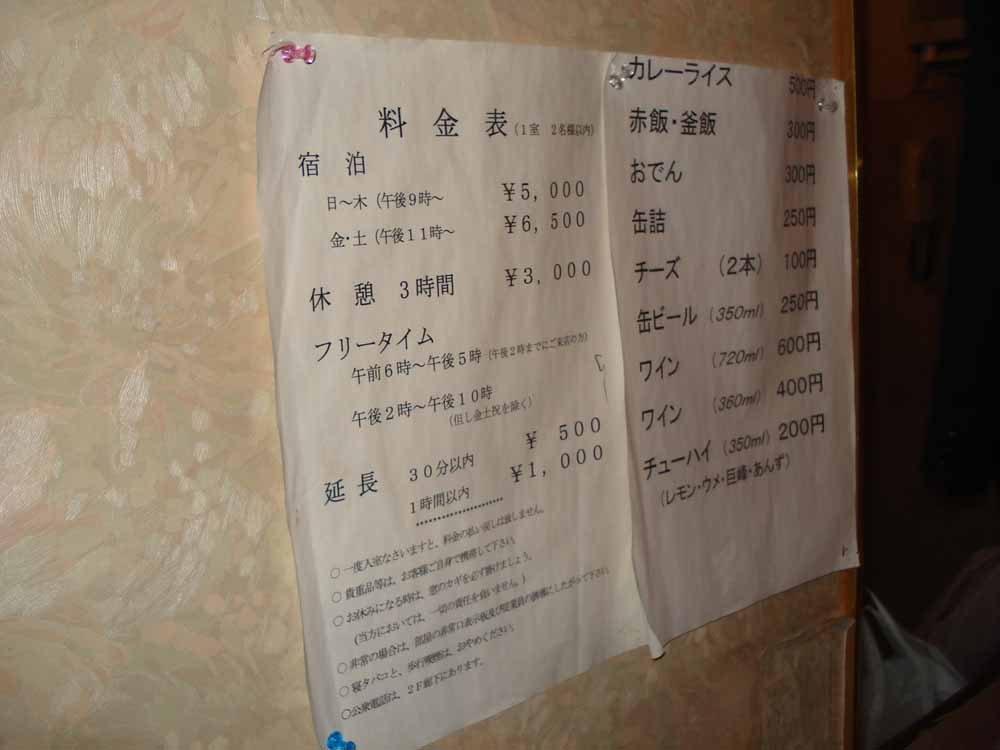 料金表(1室 2名様以内)
宿泊
日～木(午後9時～ ￥5,000
金・土(午後11時～ ￥6,500
休憩 3時間 ￥3,000
フリータイム
午前6時～午後5時(午後2時までにご来店の方)
午後2時～午後10時
(但し金土祝を除く)
延長 30分以内 ￥ 500
1時間以内 ￥1,000
○一度入室なさいますと、料金の払い戻しは致しません。
○貴重品等は、お客様ご自身で携帯して下さい。
○お休みになる時は、窓のカギを必ず掛けましょう。
(当方においては、一切の責任を負いません。)
○非常の場合は、部屋の非常口表示板及び従業員の誘導にしたがって下さい。
○寝タバコと、歩行喫煙は、おやめください。
○公衆電話は、2F廊下にあります。
カレーライス 500円
赤飯・釜飯 300円
おでん 300円
缶詰 250円
チーズ (2本) 100円
缶ビール (350ml) 250円
ワイン (720ml) 600円
ワイン (360ml) 400円
チューハイ (350ml) 200円
(レモン・ウメ・巨峰・あんず)